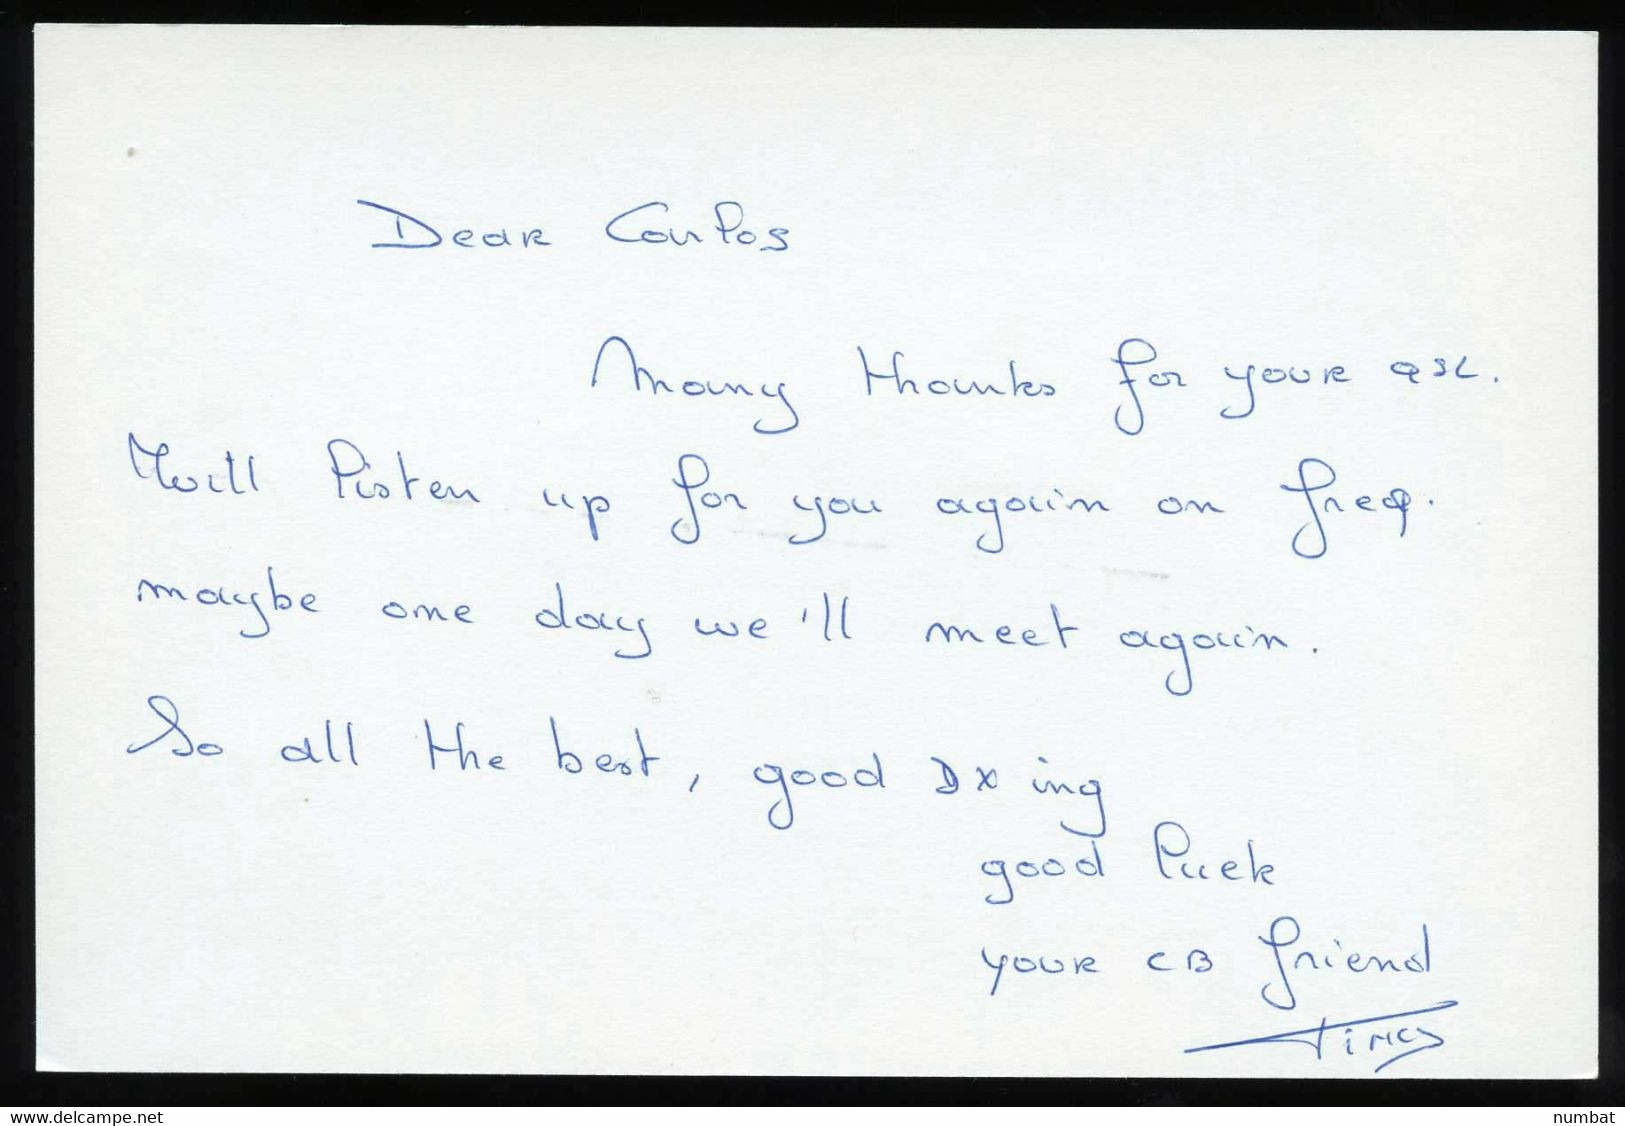 Dear Carlos
Many thanks for your QSL.
Will listen up for you again on freq.
maybe one day we'll meet again.
So all the best, good DXing
good luck
your CB friend
www.delcampe.net
numbat